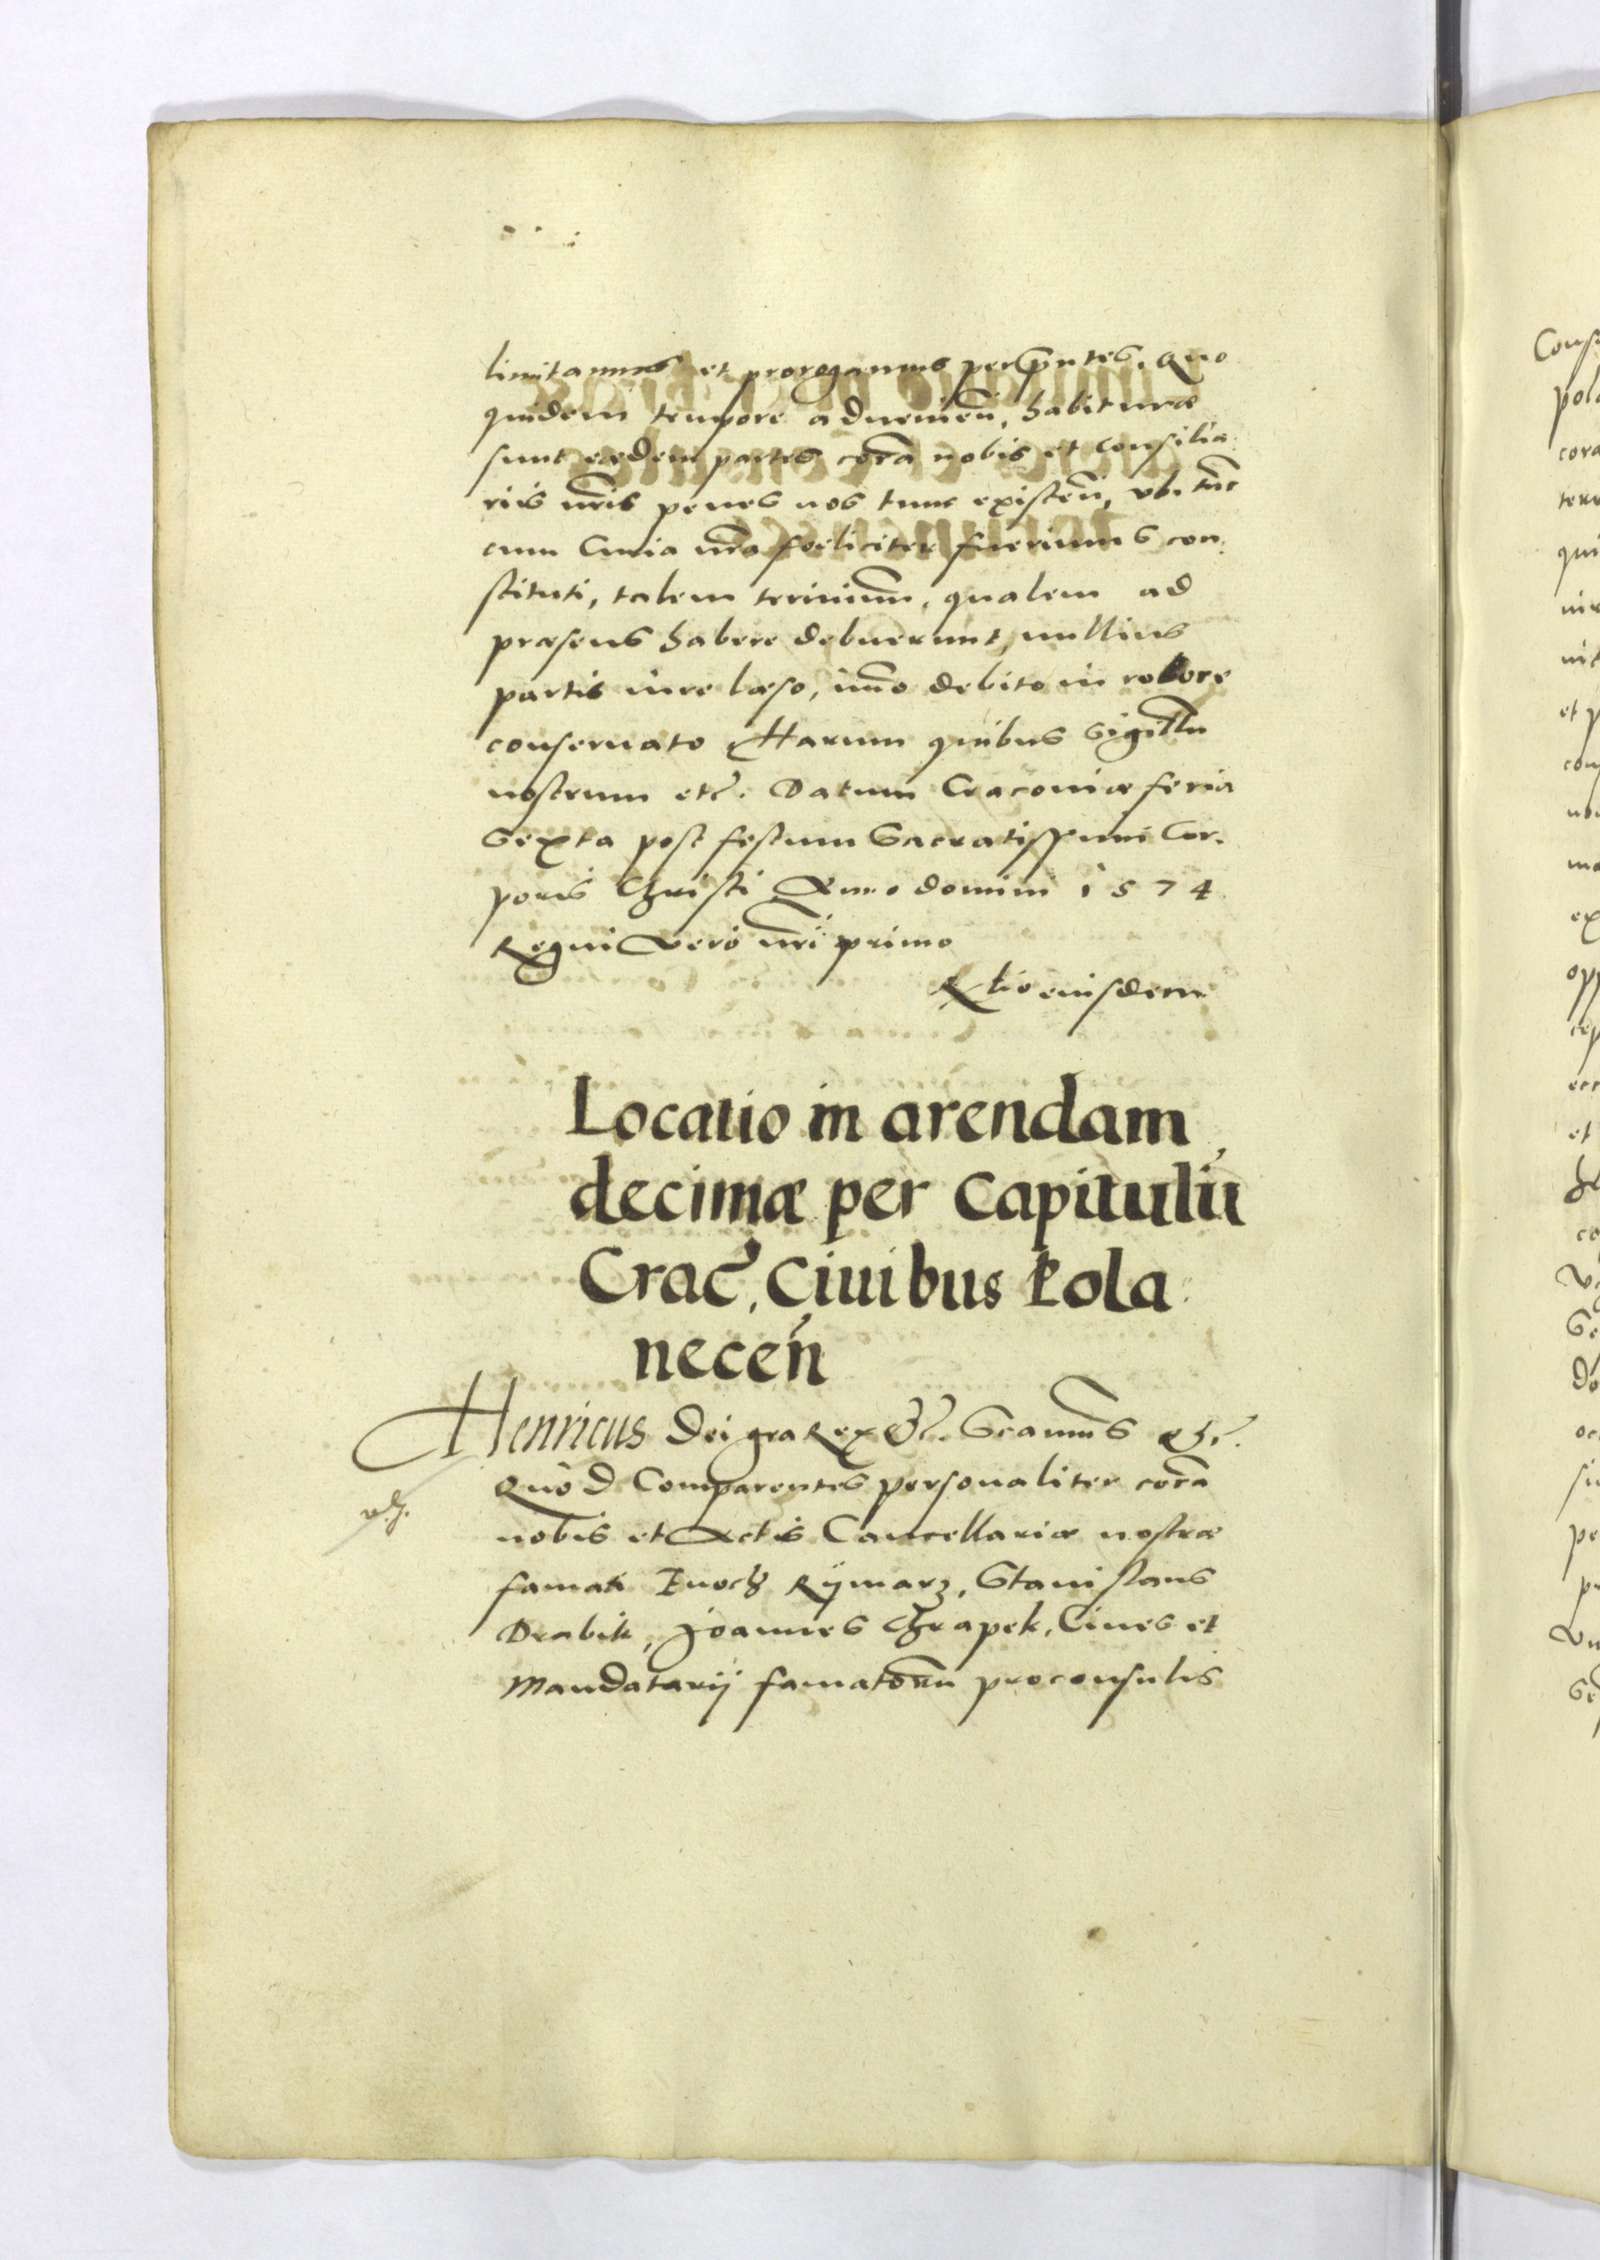 limitamus et prorogamus per p̃ntes. Quo
quidem tempore adueniẽn, habituræ
sunt eædem partes corã nobis et Consilia-
riis nr̃is penes nos tunc existẽn, vbi tũc
cum Curia nr̃a fœliciter fuerimus con-
stituti, talem terminũm, qualem ad
præsens habere debuerunt, nullius
partis iure læso, im̃o debito in robore
conseruato Harum quibus Sigillũ
nostrum etc̃. Datum Cracouiæ feria
Sexta post festum Sacratissimi Cor-
poris Christi Anno domini 1574
Regni Vero nr̃i primo
R̃lio eiusdem
Locatio in arendam
decimæ per Capitulũ
Crac̃, Ciuibus Pola
necen̄
Henricus Dei gra Rex &c̃. Scam̃us &c̃.
Quod Comparentes personaliter corã
nobis et Actis Cancellariæ nostræ
famati Enoch Rÿmarz, Stanislaus
Drabik, Joannes Chrapek, Ciues et
Mandatarÿ famatorũ proconsulis
Cons
pola
cora